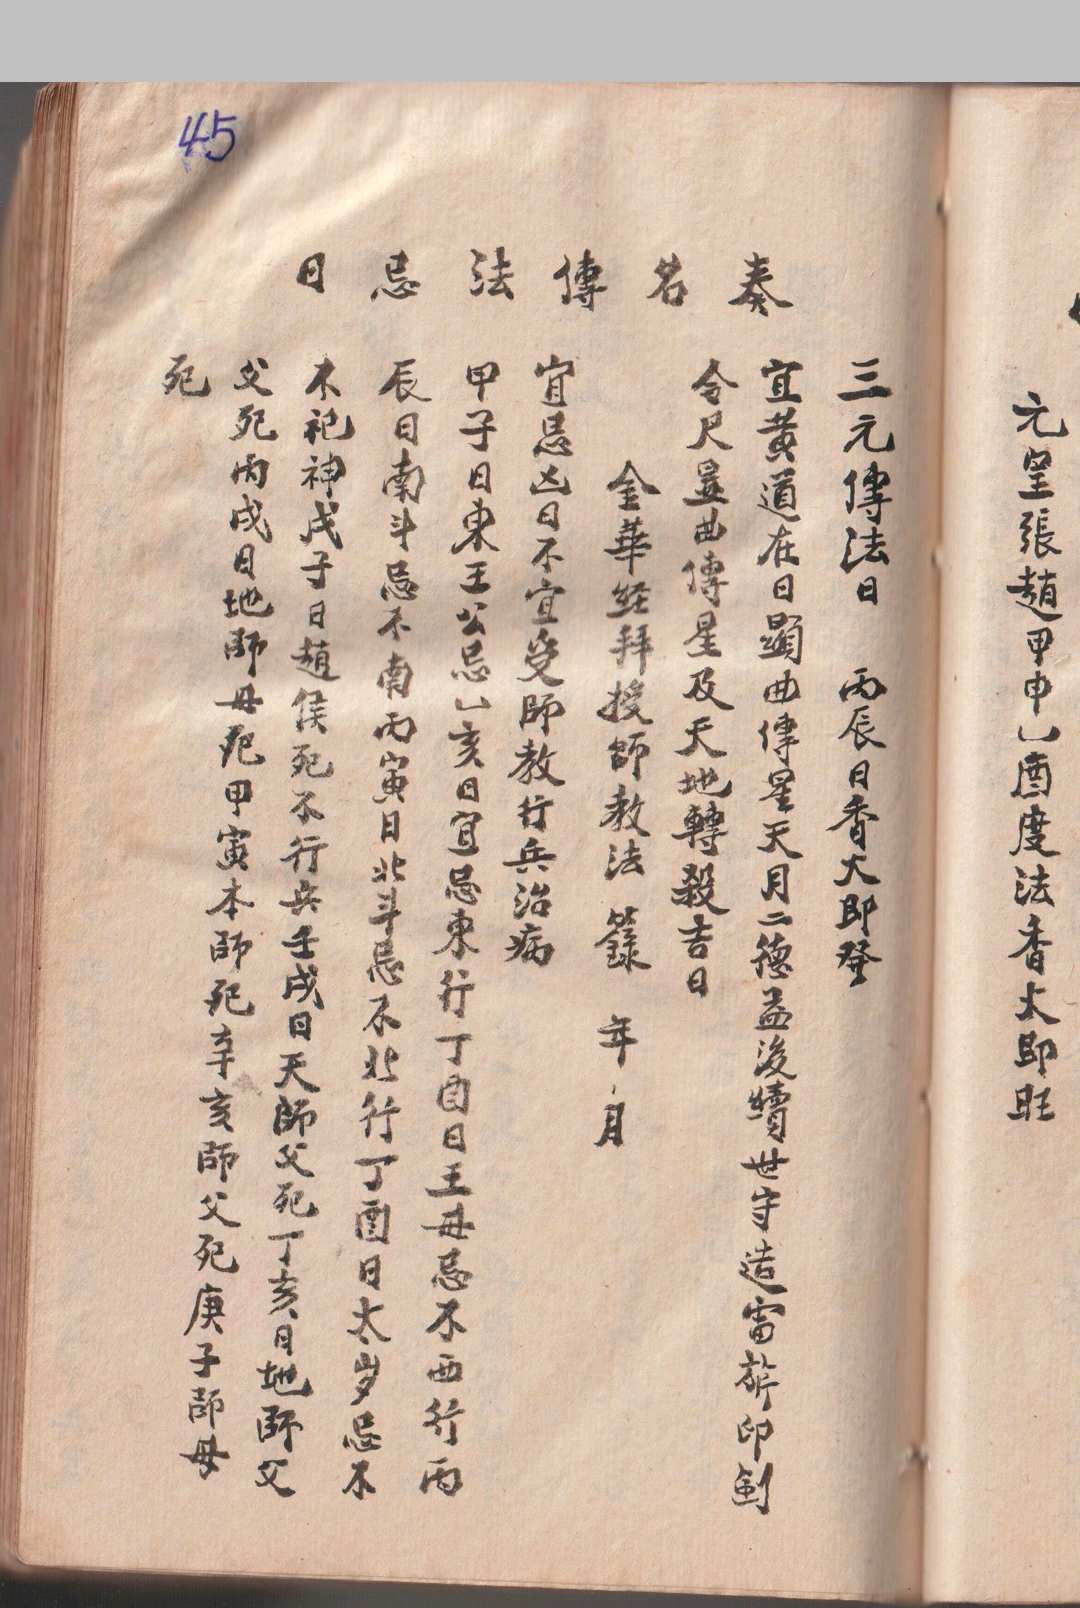 元皇張趙甲申乙酉度法香太即旺
45
奏名傳法忌日
三元傳法日 丙辰日香大即發
宜黃道在日顯曲傳星天月二德益後續世守造雷印劍
令尺顯曲傳星及天地轉殺吉日
金華経拜授師教法籙 年 月
宜忌凶日不宜受師教行兵治病
甲子日東王公忌乙亥日宜忌東行丁酉日王母忌不西行丙
辰日南斗忌不南丙寅日北斗忌不北行丁酉日太岁忌不
不祀神戊子日趙侯死不行兵壬戌日天師父死丁亥日地師父
父死丙戌日地師母死甲寅本師死辛亥師父死庚子師母
死